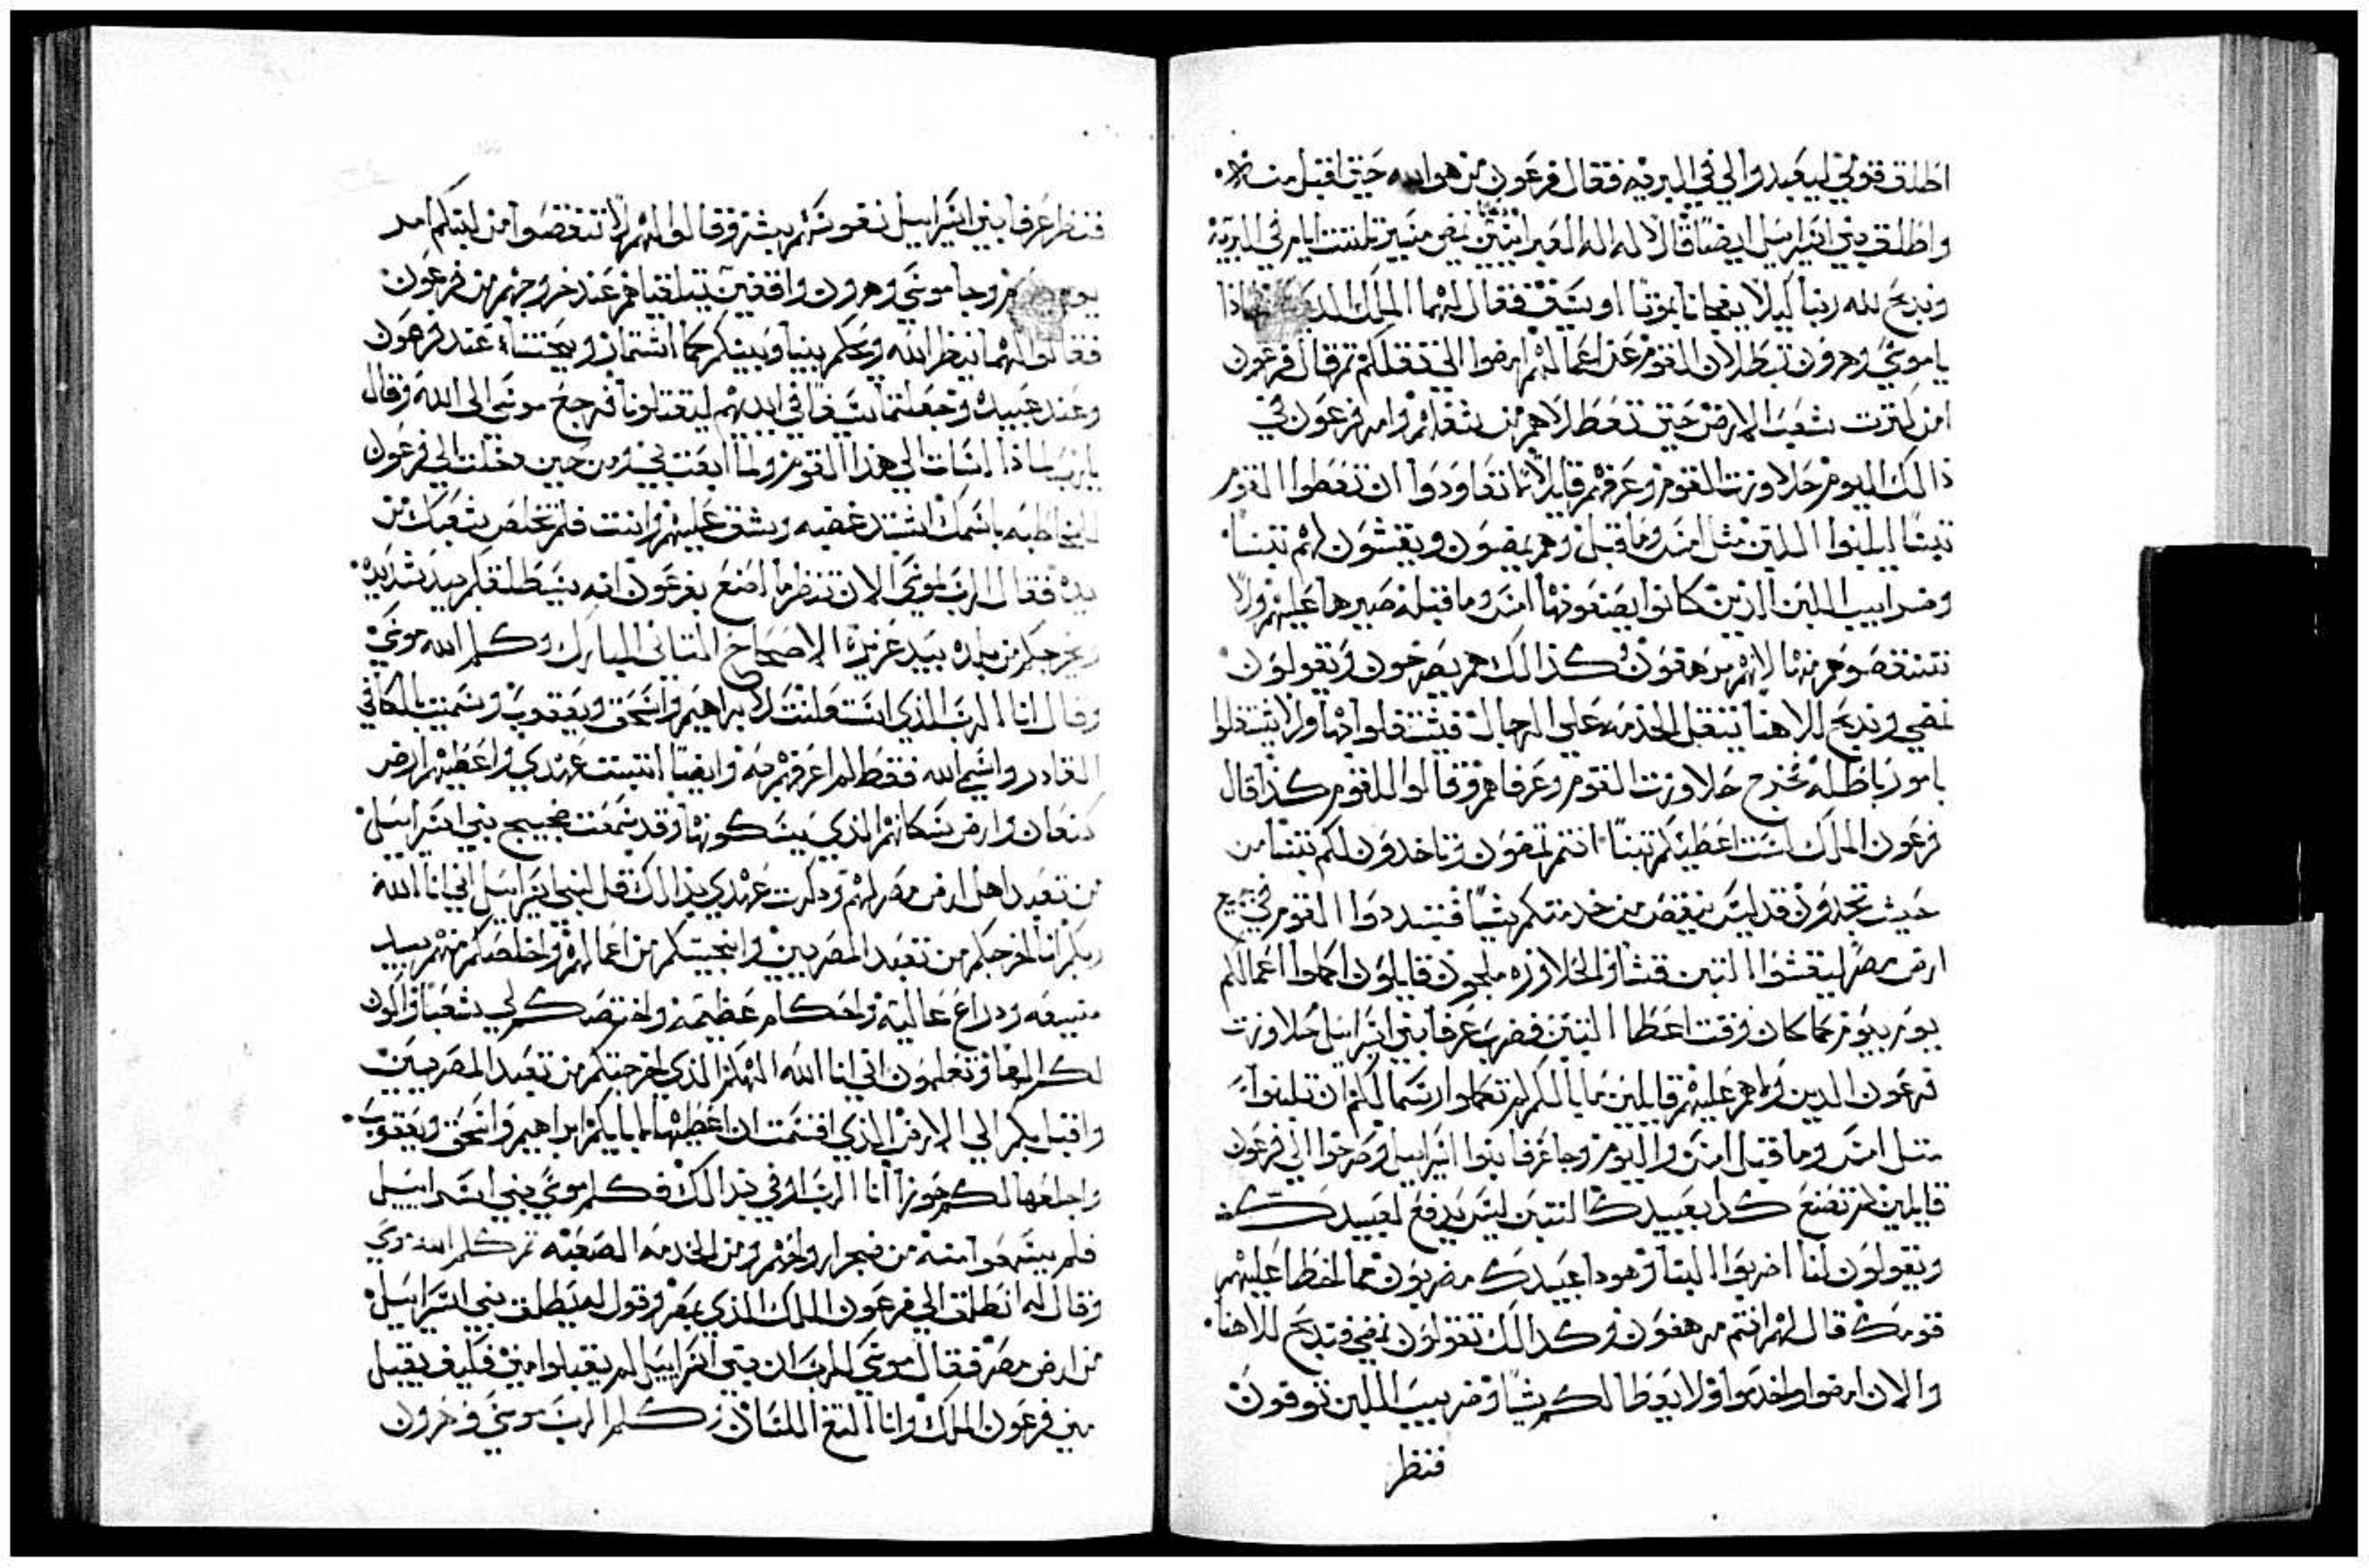 اطلق قومي ليعبدوا لي في البريه فقال فرعون من هو الله حين اقبل منه
واطلق بني اسرايل ايضا قالا له اله العبرانيين نمضي مسير تلتت ايام في البريه
وندبح لله ربنا ليلا يفجانا بموتا او بسيف فقال لهما الملك لماذا
يا موسى وهرون تبطلان القوم عن اعمالهم امضوا الى تقلكم تم قال فرعون
امن كترت شعب الارض حين تعطلاهم من تقلهم وامر فرعون في
ذالك اليوم حلاوزت القوم وعرفهم قايلا لا تعاودوا ان تعطوا القوم
تبنا ليلبنوا اللبن متل امس وما قبل وهم يمضون ويقشون لهم تبنا
وضراييب اللبن الذين كانوا يصنعونها امس وما قبله صيرها عليهم ولا
تنتقصوهم منها لانهم مرهقون وكذالك هم يصرخون ويقولون
نمضي وندبح لالاهنا تتقل الخدمه على الرجال فيشتغلوا بها ولا يشتغلوا
بامور باطله تخرج حلاوزت القوم وعرفاهم وقالوا للقوم كذا قال
فرعون الملك لست اعطيكم تبنا انتم تمضون وتاخدون لكم تبنا من
حيت تجدون قد ليس ينقص من خدمتكم شيا فتبددوا القوم في جميع
ارض مصر ليقشوا التبن قشا والحلاوزه ملحون قايلون اكملوا اعمالكم
يوم بيوم كما كان وقت اعطا التبن فضرب عرفا بني اسرايل حلاوزت
فرعون الدين ولاهم عليهم قايلين ما بالكم لم تكملوا رسما لكم ان تلبنوا
متل امس وما قبل امس واليوم وجا عرفا بنوا اسراييل وصرخوا الى فرعون
قايلين لم تصنع كدا بعبيدك التبن ليس يدفع لعبيدك
ويقولون لنا اضربوا اللبنا وهودا عبيدك مضربون مما الخطا عليهم
قومك قال لهم انتم مرهفون وكدالك تقولون نمضي وندبح لالاهنا
والان امضوا واخدموا ولا يعطا لكم تبنا وضريبت اللبن توفون
فنظر
فنظر عرفا بني اسراييل نفوسهم بشر وقالوا لهم لا تنقصوا من لبنكم امر
يوم وجا موسى وهرون واقفين تتلقياهم عند خروجهم من فرعون
فقالوا لهما ينظر الله ويحكم بيننا وبينكم كما اسمتما ريحتنا عند فرعون
وعند عبيده وجعلتما سيفا في ايديهم ليقتلونا فرجع موسى الى الله وقال
يا رب لماذا اسات الى هذا القوم ولما ابعتني ومن حين دخلت الى فرعون
لاخاطبه باسمك اشتد غضبه وشق عليهم وانت فلم تخلص شعبك من
يده فقال الرب لموسى الان تنظر ما اصنع بفرعون انه سيطلقكم بيد شديده
ويخرجكم من بلده بيد عزيزة الاصحاح التاني المبارك وكلم الله موسى
وقال انا الرب الذي استعلنت لابراهيم واسحق ويعقوب وسميت بالكافي
القادر واسم الله فقط لم اعرفهم به وايضا اتبتت عهدي واعطيهم ارض
كنعان وارض سكانهم الذي يسكونها وقد سمعت ضجيج بني اسراييل
من تعبد اهل ارض مصر لهم ودكرت عهدي بذالك قل لبني اسراييل اني انا الله
ربكم انا اخرجكم من تعبد المصريين وانجيتكم من اعمالهم واخلصكم منهم بيد
منيعه ودراع عاليه واحكام عظيمه واختصكم لي شعبا واكون
لكم الها وتعلمون اني انا الله الهكم الذي اخرجتكم من تعبد المصريين
واقبل بكم الى الارض الذي اقسمت ان اعطيها لابايكم ابراهيم واسحق ويعقوب
واجلعها لكم حوزا انا الرب اوفي بدالك فكلم موسى بني اسراييل
فلم يسمعوا منه من ضجرا رواحهم ومن الخدمه الصعبه تم كلم الله موسى
وقال له انطلق الى فرعون الملك الذي بمصر وقول له يطلق بني اسراييل
من ارض مصر فقال موسى للرب ان بني اسراييل لم يقبلوا مني فكيف يقبل
مني فرعون الملك وانا التغ اللسان وكلم الرب موسى وهرون